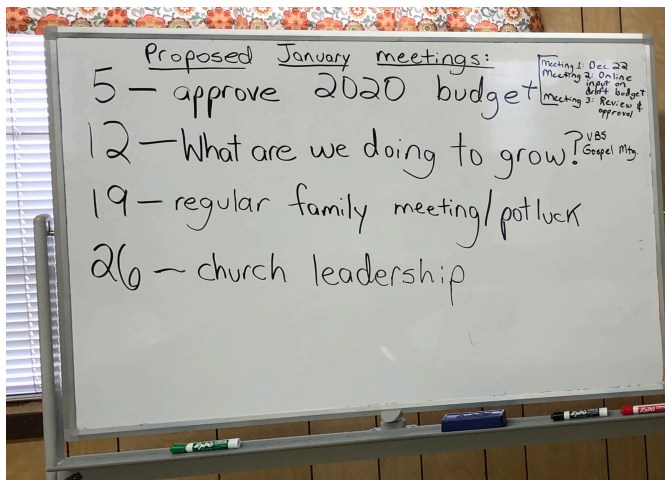 Proposed January meetings:
5 – approve 2020 budget
Meeting 1: Dec. 22
Meeting 2: Online
input on
draft budget
Meeting 3: Review &
approval
12 – What are we doing to grow?
VBS
Gospel Mtg.
19 – regular family meeting/potluck
26 – church leadership
EXPO
EXPO
EXPO